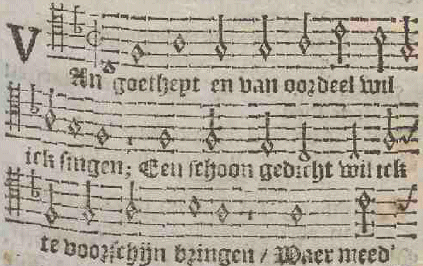 VAn goetheyt en van oordeel wil
ick singen; Een schoon gedicht wil ick
te voorschijn bringen / Waer meed'